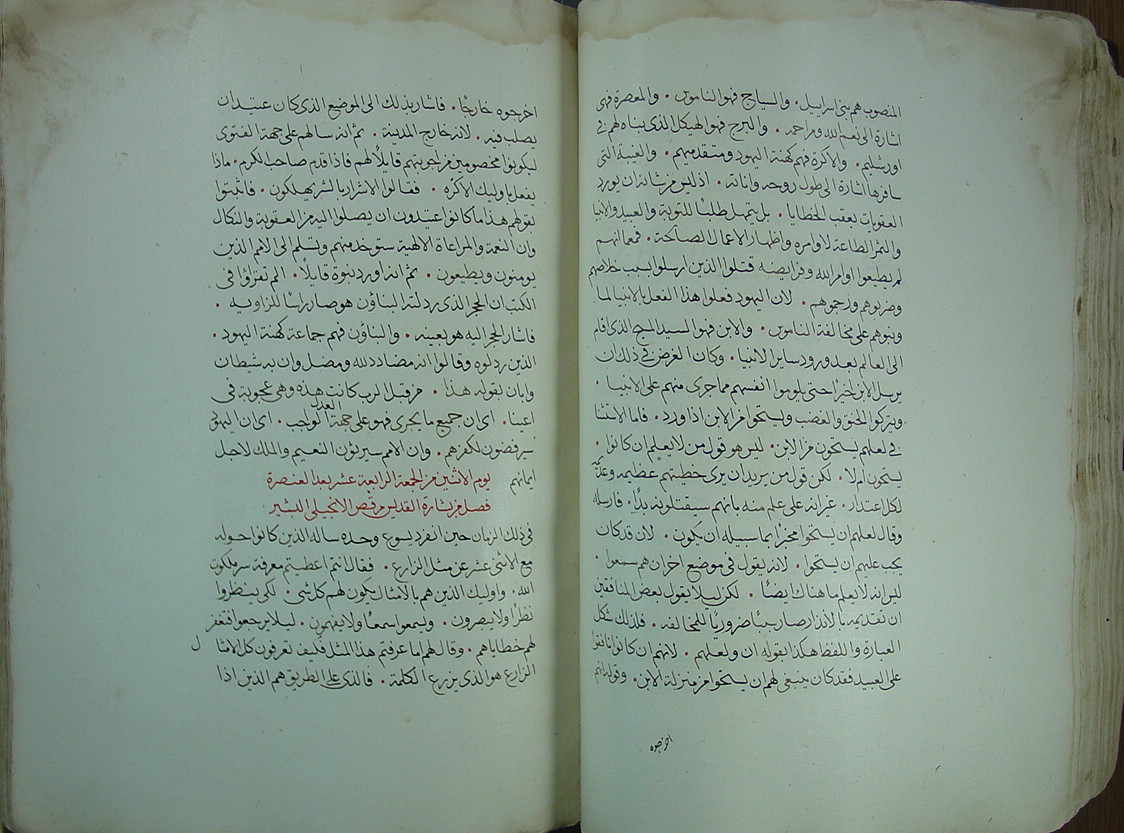 المنصوب هم بنى اسراييل. والسياج فهو الناموس. والمعصرة فهى
اشارة الى نعم الله ومراحمه. والبرج فهو الهيكل الذى بناه لهم فى
اورشليم. والاكرة فهم كهنة اليهود ومتقدميهم. والغيبة التى
سافرها اشارة الى طول روحه واناته. اذ ليس من شانه ان يورد
العقوبات بعقب الخطايا. بل يتمهل طلبًا للتوبة والعبيد والانبيا
والثمر الطاعة لاوامره واظهار الاعمال الصالحة. فمع انهم
لم يطيعوا اوامر الله وفرايضه قتلوا الذين ارسلوا بسبب خلاصهم
وضربوهم ورجموهم. لان اليهود فعلوا هذا الفعل بالانبيا لما
ونبوهم على مخالفة الناموس. والابن فهو السيد المسيح الذى اقام
الى العالم بعد ورود ساير الانبيا. وكان الغرض فى ذلك ان
يرسل الابن اخيرًا حتى يلوموا انفسهم مما جرى منهم على الانبيا.
ويتركوا الحنق والغضب ويستحوا من الابن اذا ورد. فاما الاستثنا
فى لعلهم يستحون من الابن. ليس هو قول من لا يعلم ان كانوا.
يستحون ام لا. لكن قول من يريد ان يرى خطيتهم عظيمه
لكل اعتدار. غير انه على علم منه بانهم سيقتلونه بديًا. فارسله
وقال لعلهم ان يستحوا مخبرًا بما سبيله ان يكون. لان قد كان
يجب عليهم ان يستحوا. لانه يقول فى موضع اخر ان هم سمعوا.
ليس انه لا يعلم ما هناك ايضًا. لكن ليلا يقول بعض المنافقين
ان تقديمه بالانذار صار سببًا ضروريًا للمخالفه. فلذلك شكل
العبارة واللفظ هكذا بقوله ان ولعلهم. لانهم ان كانوا نافقوا
على العبيد فقد كان ينبغى لهم ان يستحوا من منزلة الابن. وقوله انهم
اخرجوه
اخرجوه خارجًا. فاشار بذلك الى الموضع الذى كان عتيدان
يصلب فيه. لانه خارج المدينة. ثم انه سالهم على جهة الفتوى
ليكونوا مخصومين من اجوبتهم قايلًا لهم فاذا قدم صاحب الكرم. ماذا
يفعل باوليك الاكره. فقالوا الاشرار بالشر يهلكون. فاثبتوا
بقولهم هذا ما كانوا عتيدون ان يصلوا اليه من العقوبة والنكال
وان النعمة والمراعاة الالهية ستوخد منهم وتسلم الى الامم الذين
يومنون ويطيعون. ثم انه اورد نبوة قايلًا. الم تقراوا فى
الكتب ان الحجر الذى ردلته البناؤن هو صار راسًا للزاويه.
فاشار بالحجر اليه هو بعينه. والبناؤن فهم جماعة كهنة اليهود.
الذين ردلوه وقالوا انه مضاد دلله ومضل وان به شيطان
وابان بقوله هذا. من قبل الرب كانت هذه وهى عجوبة فى
اعيننا. اى ان جميع ما يجرى فهو على جهة العدل والواجب. اى ان اليهود
سيرفضون لكفرهم. وان الامم سيرثون النعيم والملك لاجل
ايمانهم
يوم الاثنين من الجمعة الرابعة عشر بعد العنصرة
فصل من بشارة القديس مرقص الانجلى البشير
فى ذلك الزمان حين انفرد يسوع وحده ساله الذين كانوا حوله
مع الاثنى عشر عن مثل الزارع. فقال انتم اعطيتم معرفة سر ملكوت
الله. واوليك الذين هم بالامثال يكون لهم كل شى. لكى ينظروا
نظرًا ولا يبصرون. ويسمعوا سمعًا ولا يفهمون. ليلا يرجعوا فتغفر
لهم خطاياهم. وقال لهم اما عرفتم هذا المثل فكيف تعرفون كل الامثال
الزارع هو الذى يزرع الكلمة. فالذى على الطريق هم الذين اذا